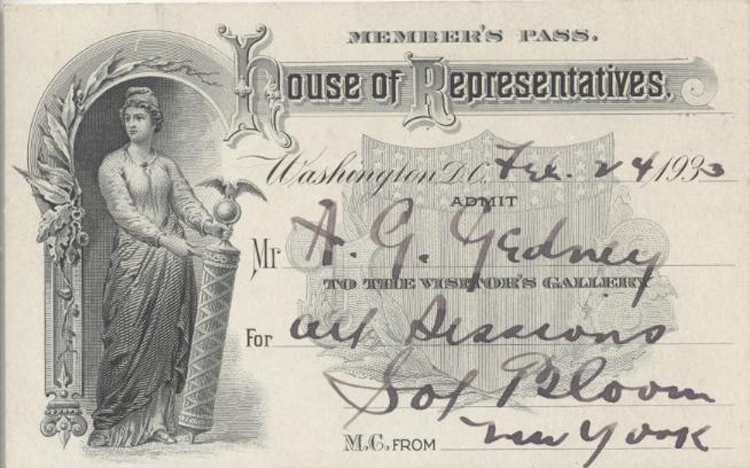 MEMBER'S PASS.
House of Representatives.
Washington D.C. Feb. 24 1933
ADMIT
Mr A. G. Gedney
TO THE VISITOR'S GALLERY
For all Sessions
Sol Bloom
M.C. FROM New York